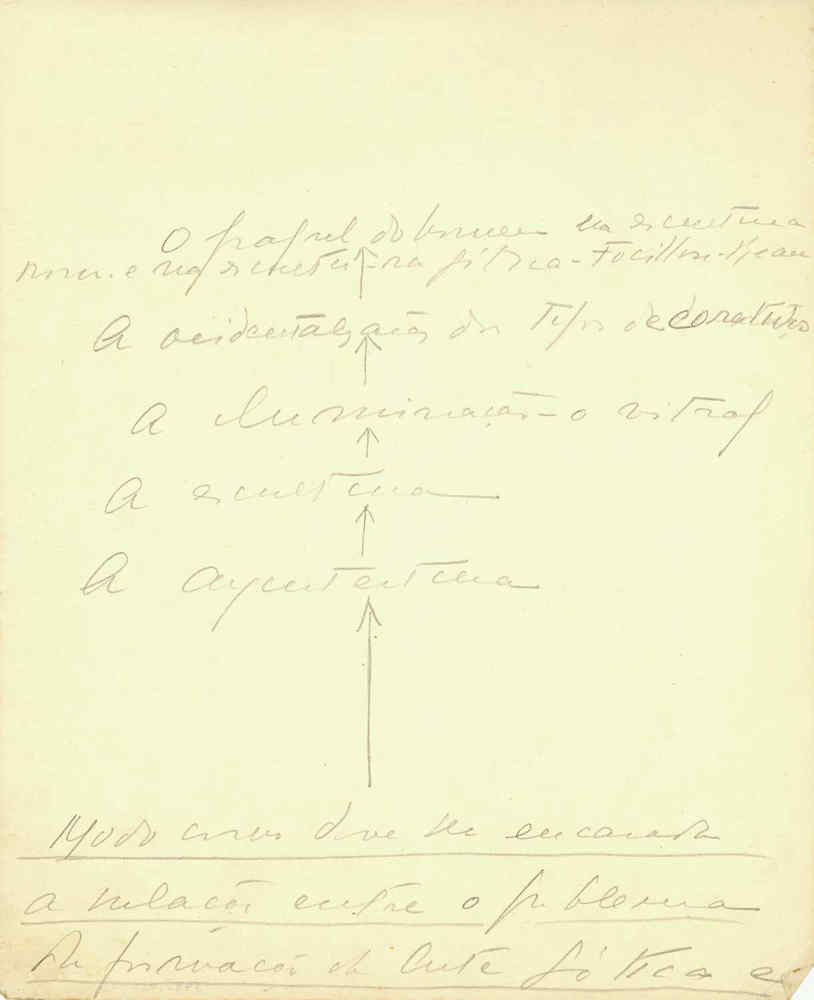 O papel do homem na escultura
rom. e na escultura gótica - Focillon -
A ocidentalização dos tipos decorativos
A iluminação - o vitral
A escultura
A arquitectura
Modo como deve ser encarada
a relação entre o problema
da formação da Arte Gótica e